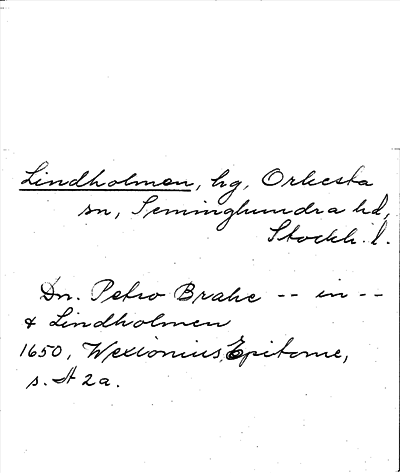 Lindholmen, hg, Orkesta
sn, Seminghundra hd,
Stockh. l.
Dn. Petro Brahe -- in --
& Lindholmen
1650, Wexionius, Epitome,
s. A 2a.